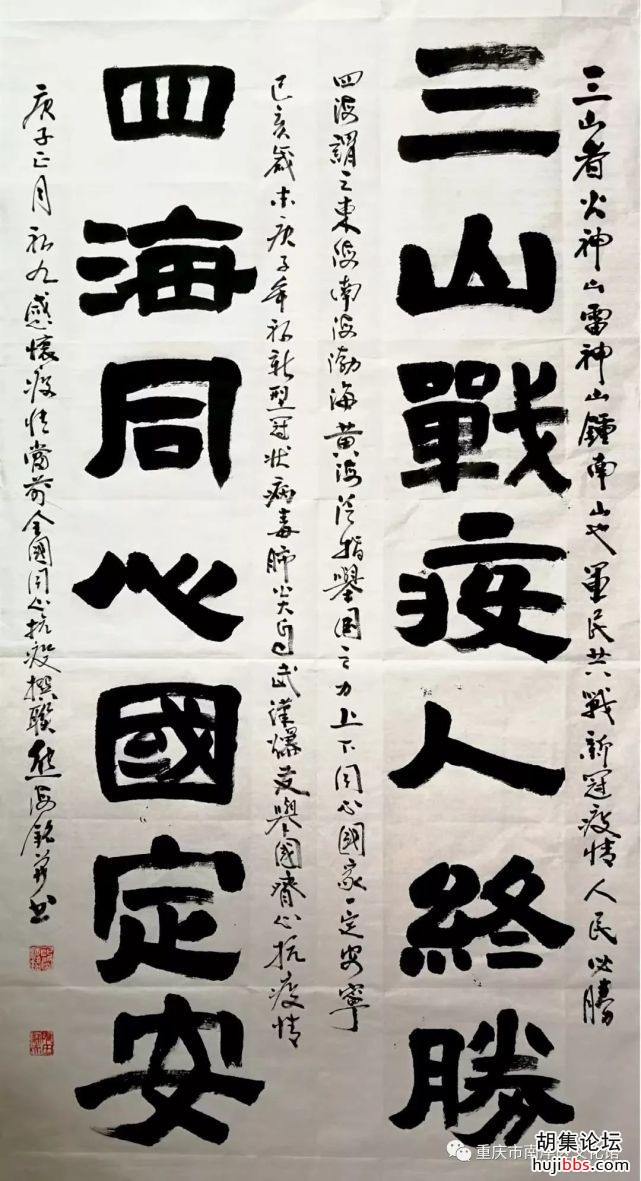 三山者火神山雷神山鍾南山也軍民共戰新冠疫情人民必勝
三山戰疫人終勝
四海謂之東海南海渤海黄海泛指舉國之力上下同心國家一定安寧
己亥歲末庚子年初新型冠狀病毒肺炎自武漢爆发舉國齊心抗疫情
四海同心國定安
庚子正月初九感懷疫情當前全國同心抗疫撰聯熊海銘並书
重庆市南岸区文化馆
胡集论坛
hujibbs.com